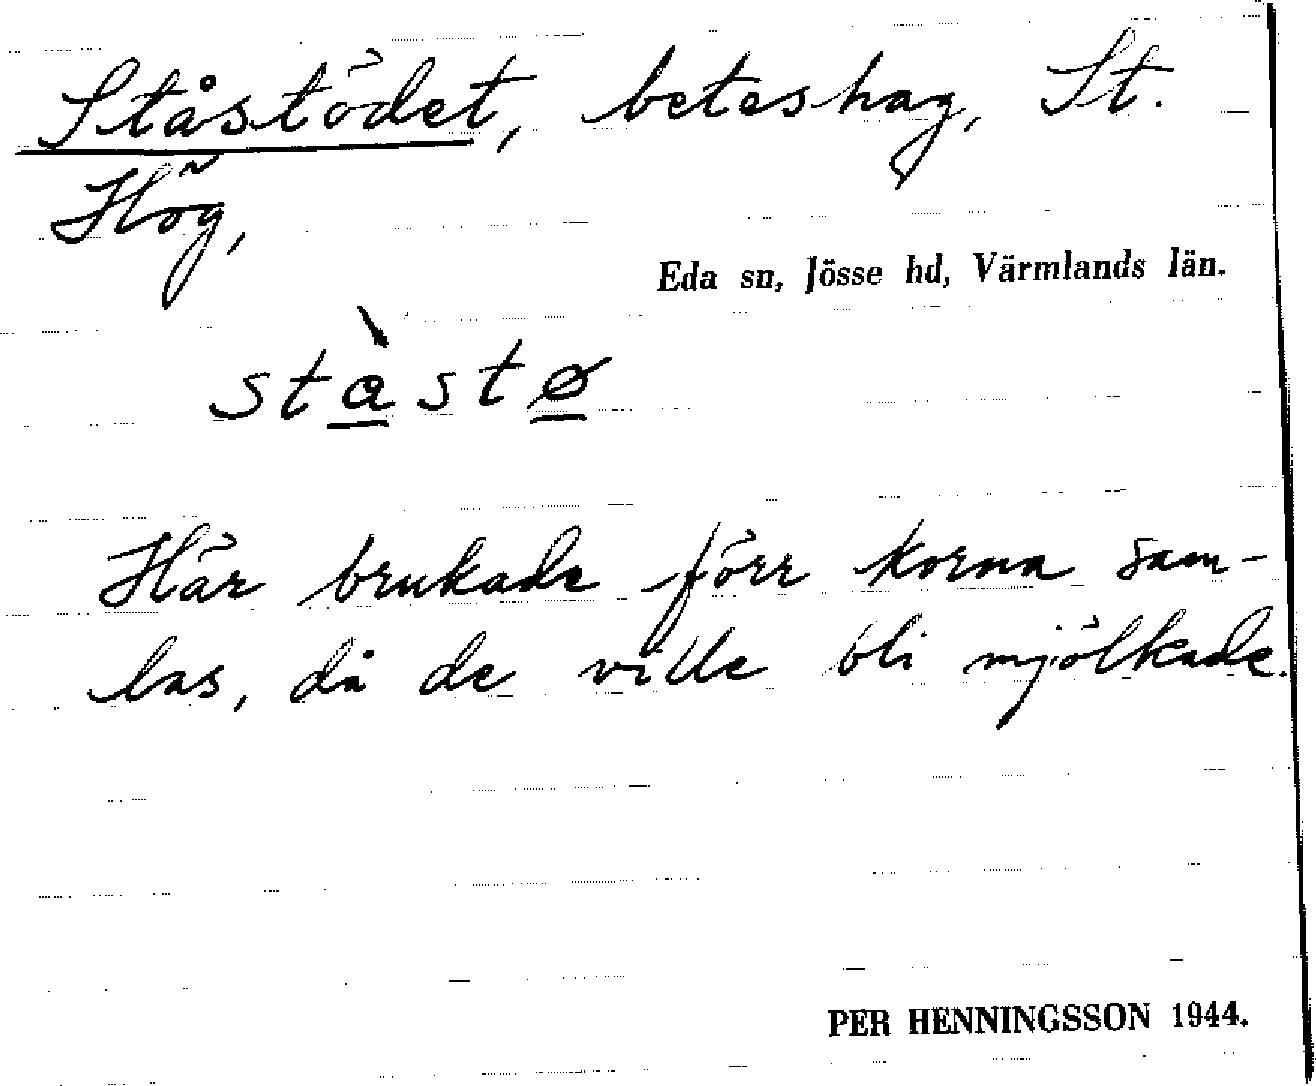 Ståstödet, beteshag, St.
Hög,
Eda sn, Jösse hd, Värmlands län.
stàstø
Här brukade förr korna sam-
las, då de ville bli mjölkade.
PER HENNINGSSON 1944.